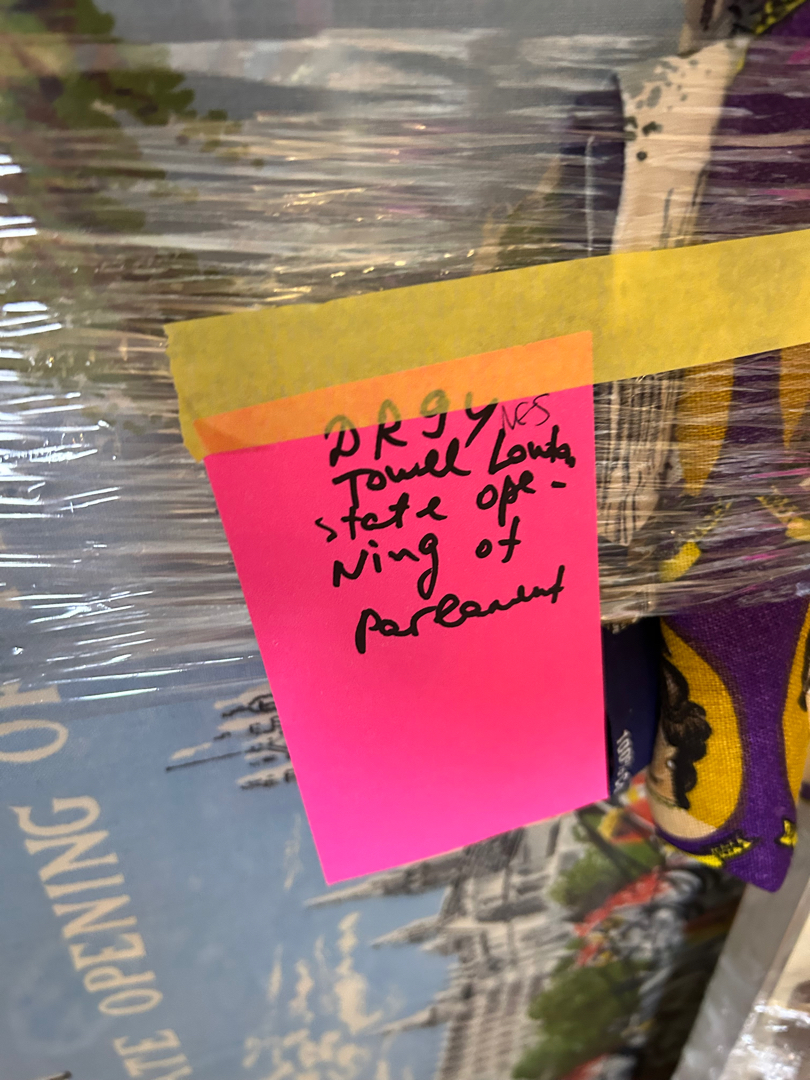 DRgy Nes
Towel London
state ope-
Ning of
Parlament
OF
ATE OPENING